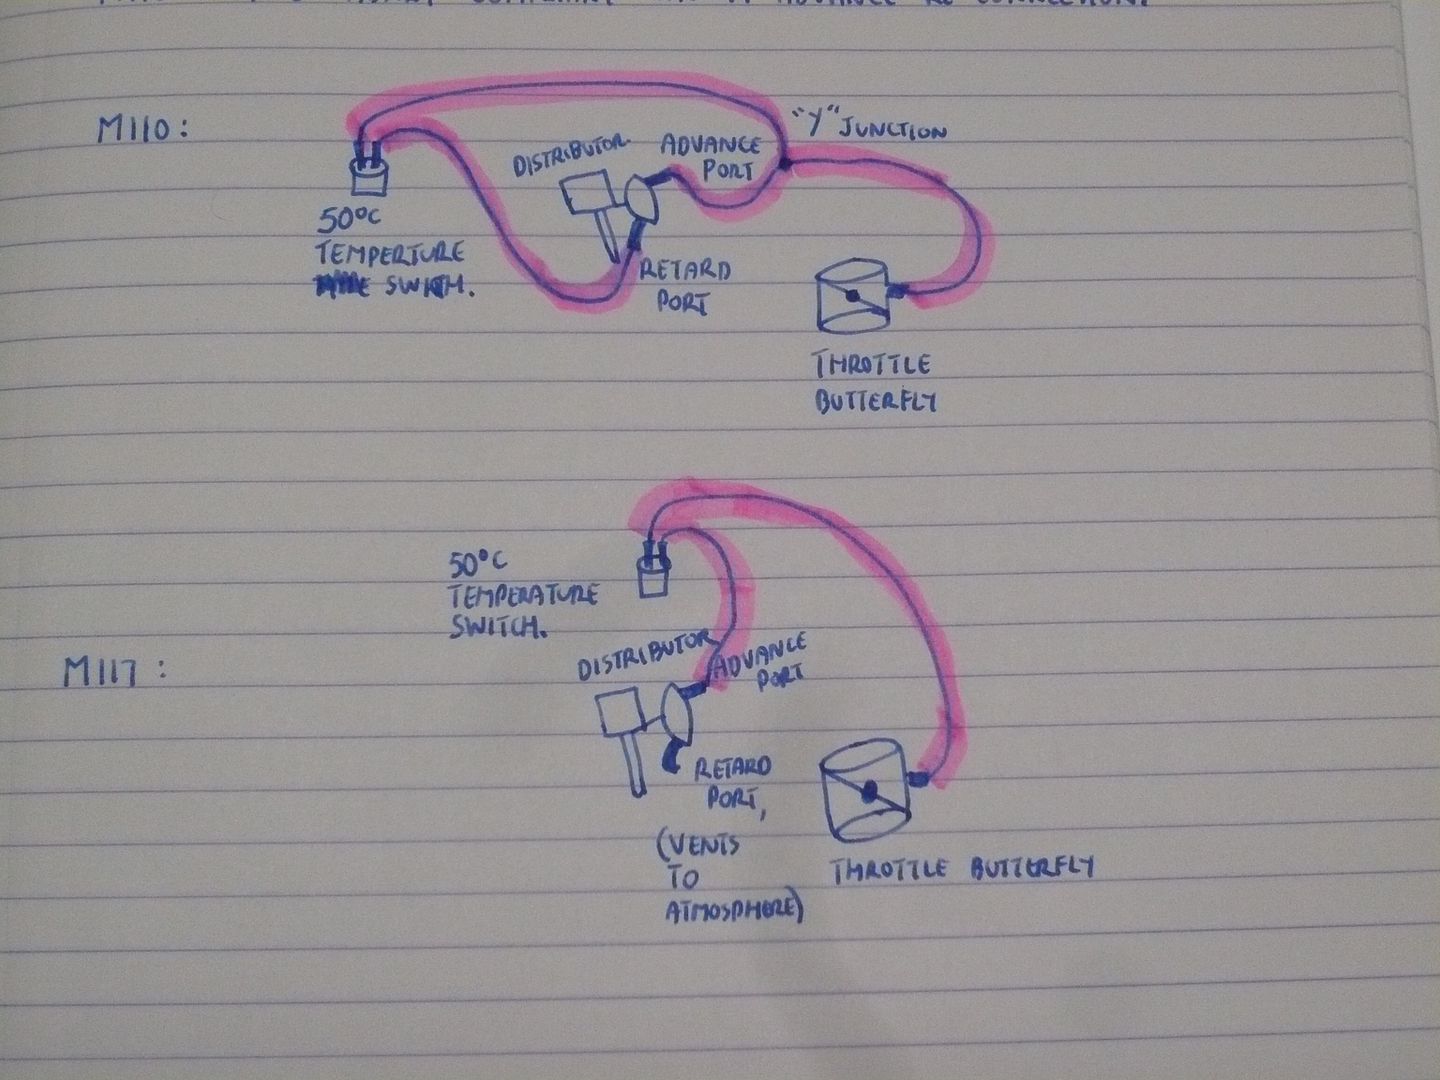 ADVANCE RE-CONNECTION.
M110:
"Y" JUNCTION
DISTRIBUTOR
ADVANCE
PORT
50°C
TEMPERTURE
SWITCH.
RETARD
PORT
THROTTLE
BUTTERFLY
50°C
TEMPERATURE
SWITCH.
M117:
DISTRIBUTOR
ADVANCE
PORT
RETARD
PORT,
(VENTS
TO
ATMOSPHERE)
THROTTLE BUTTERFLY